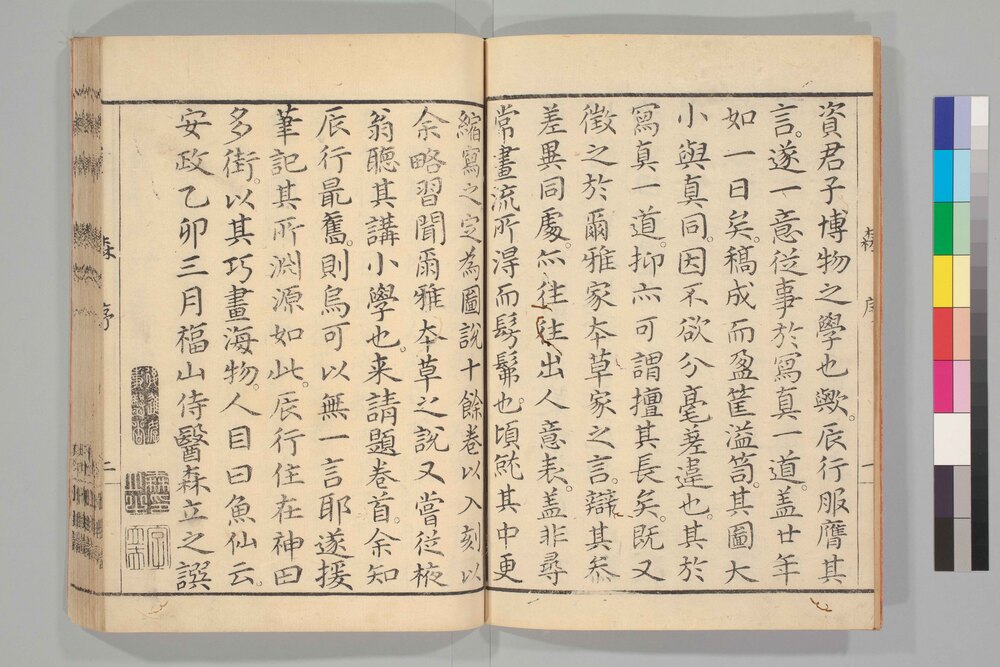 資君子。博物之學也歟。辰行服膺其
言。遂一意從事於寫真一道。盖廿年
如一日矣。稿成而盈筐溢笥。其圖大
小與真同。因不欲分毫差違也。其於
寫真一道。抑亦可謂擅其長矣。既又
徵之於爾雅家本草家之言。辯其叅
差異同處。亦往往出人意表。盖非尋
常畫流所得而髣髴也。頃就其中更
縮寫之定為圖說十餘卷以入刻以
余略習聞爾雅本草之說又嘗從棭
翁聽其講小學也。来請題卷首。余知
辰行最舊。則烏可以無一言耶遂援
筆記其所淵源如此。辰行住在神田
多街。以其巧畫海物。人目曰魚仙云。
安政乙卯三月福山侍醫森立之譔
森 序 一
森 序 二